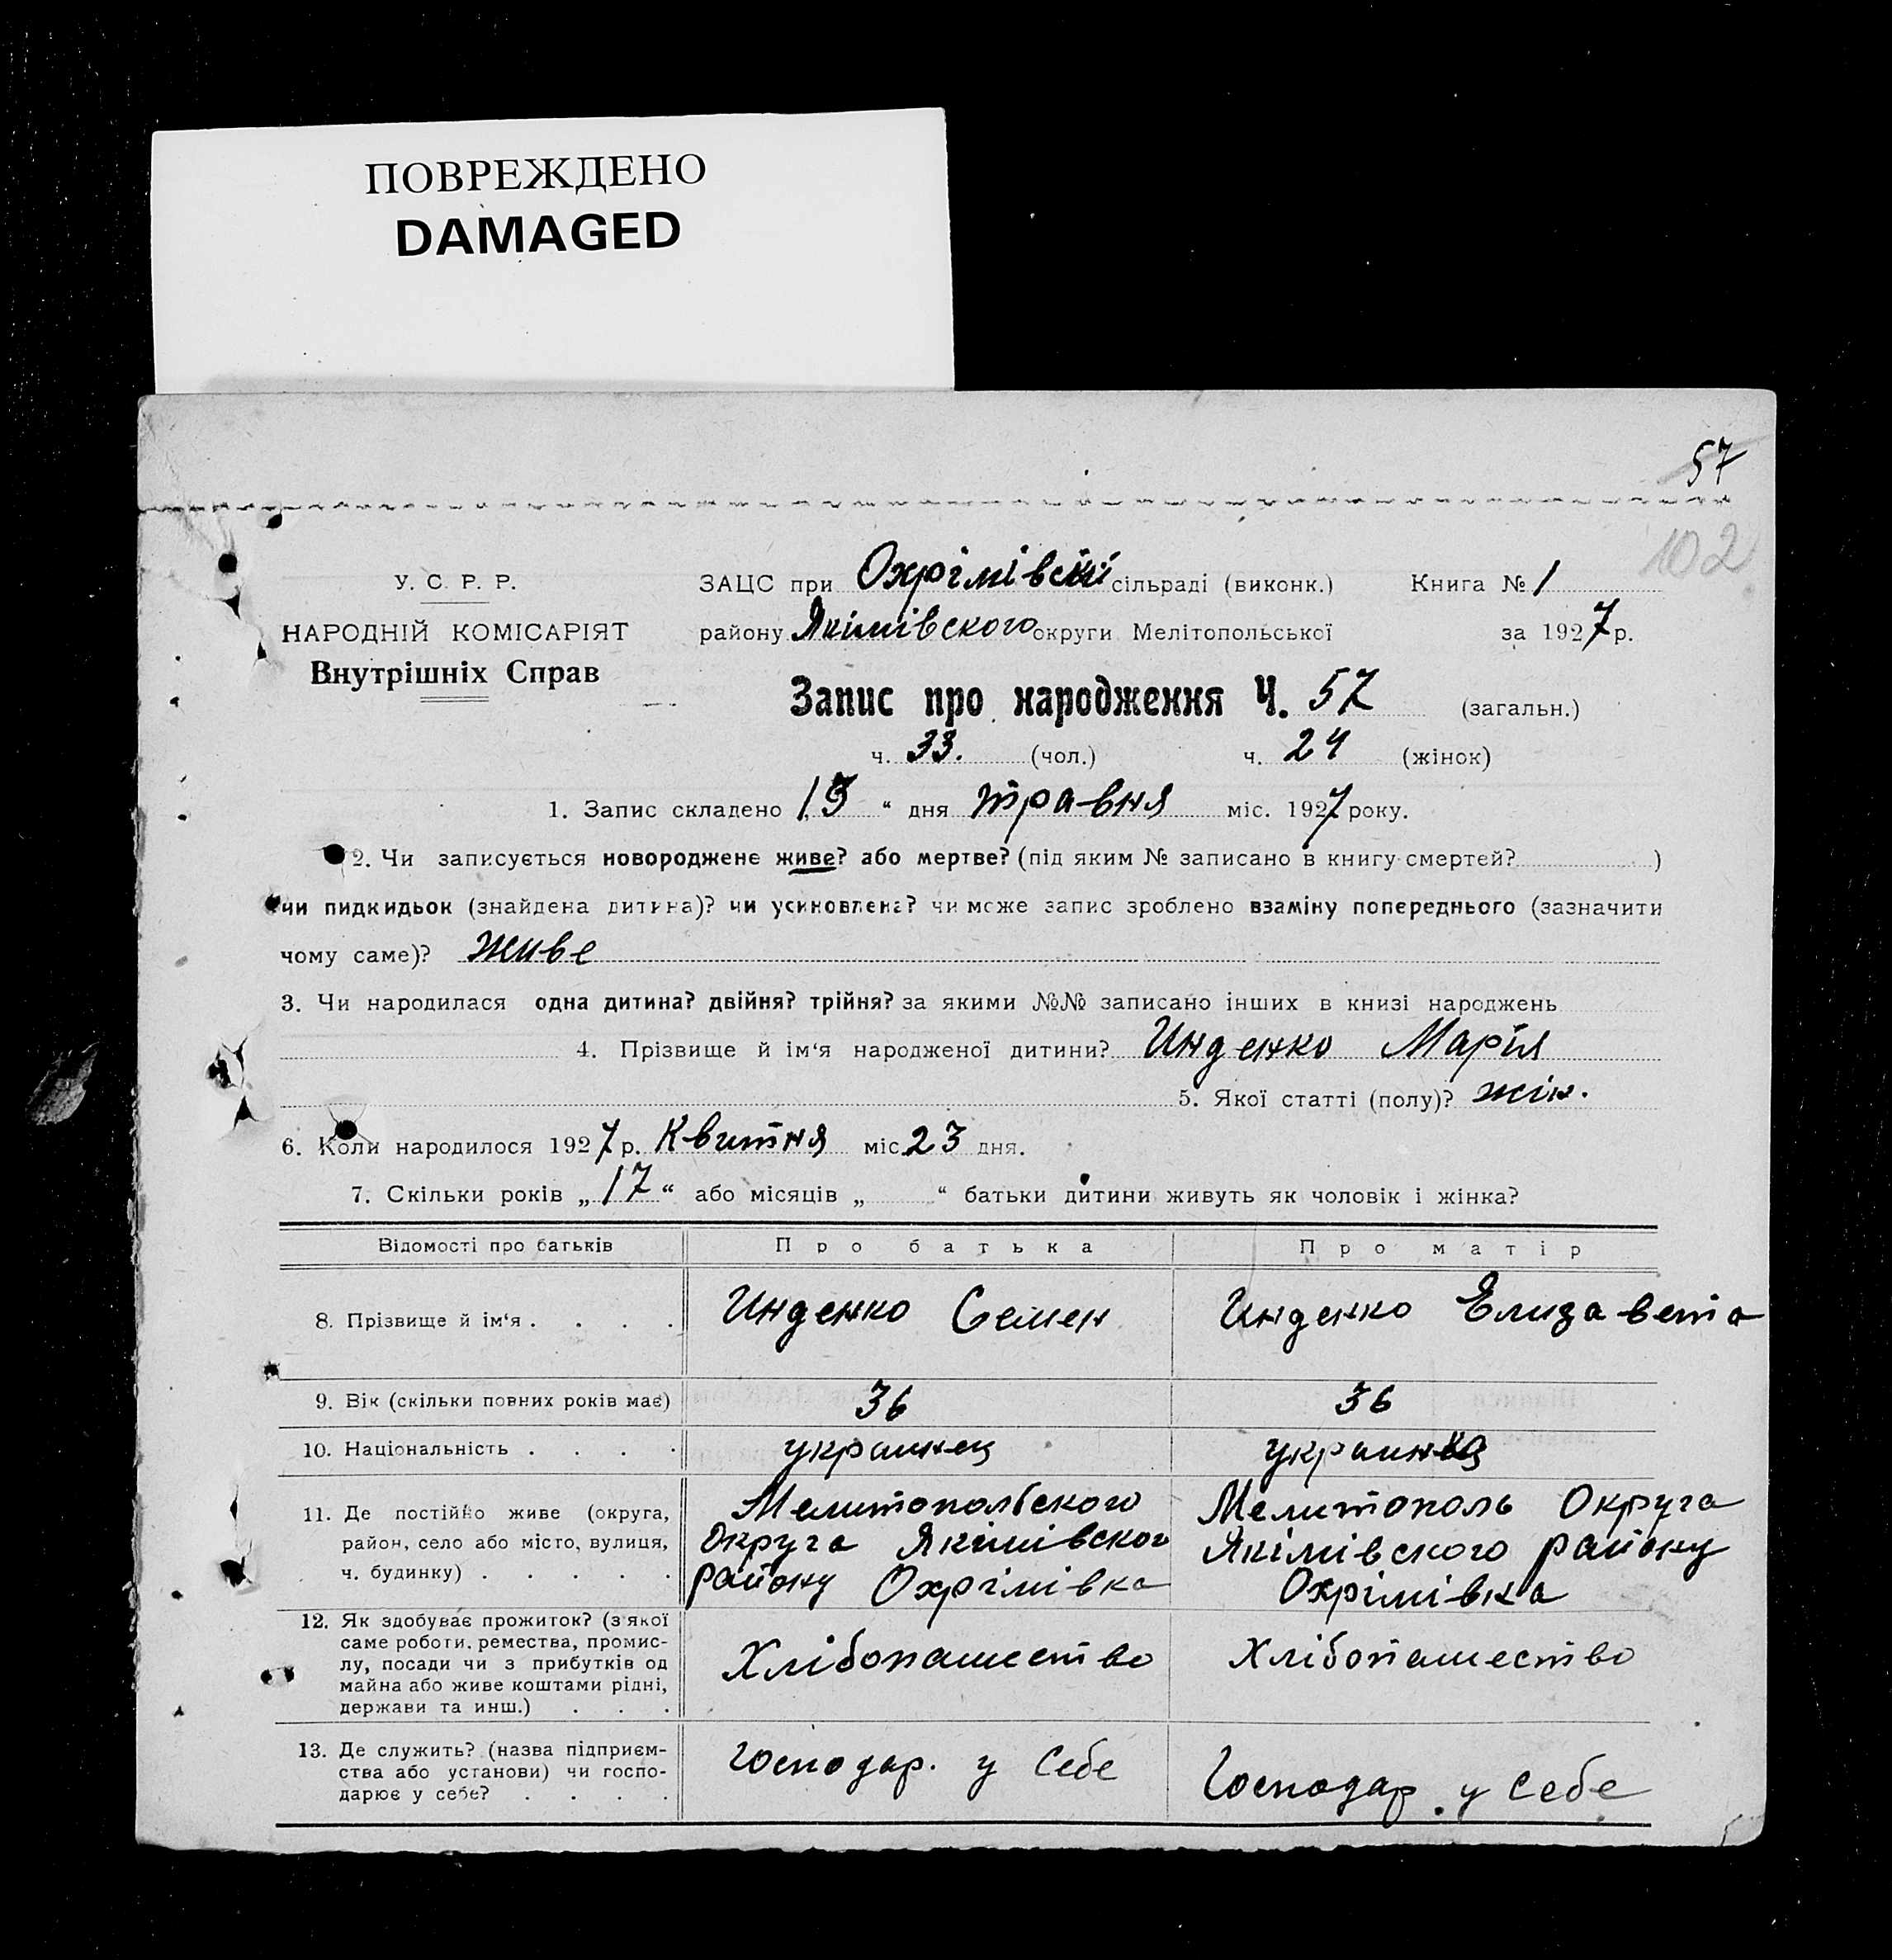 ПОВРЕЖДЕНО
DAMAGED
57
102
У. С. Р. Р.
НАРОДНІЙ КОМІСАРІЯТ
Внутрішніх Справ
ЗАЦС при Охрімівскій сільраді (виконк.) Книга № 1
району Якімівского округи Мелітопольської за 1927 р.
Запис про народження Ч. 57 (загальн.)
ч. 33. (чол.) ч. 24 (жінок)
1. Запис складено „ 13 “ дня травня міс. 1927 року.
2. Чи записується новороджене живе? або мертве? (під яким № записано в книгу смертей? )
чи пидкидьок (знайдена дитина)? чи усиновлена? чи може запис зроблено взаміну попереднього (зазначити
чому саме)? живе
3. Чи народилася одна дитина? двійня? трійня? за якими №№ записано інших в книзі народжень
4. Прізвище й ім‘я народженої дитини? Инденко Марія
5. Якої статті (полу)? жін.
6. Коли народилося 1927 р. Квитня міс. 23 дня.
7. Скільки років „ 17 “ або місяців „ “ батьки дитини живуть як чоловік і жінка?
Відомості про батьків Про батька Про матір
8. Прізвище й ім‘я . . . . Инденко Семен Инденко Елизавета
9. Вік (скільки повних років має) 36 36
10. Національність . . . . украинец украинка
11. Де постійно живе (округа,
район, село або місто, вулиця,
ч. будинку) . . . . .
Мелитопольского
Округа Якімівского
району Охрімівка
Мелитополь Округа
Якімівского району
Охрімівка
12. Як здобуває прожиток? (з якої
саме роботи, ремества, промис-
лу, посади чи з прибутків од
майна або живе коштами рідні,
держави та инш.) . . .
Хлібопашество
Хлібопашество
13. Де служить? (назва підприєм-
ства або установи) чи госпо-
дарює у себе? . . . .
Господар. у Себе
Господар. у Себе